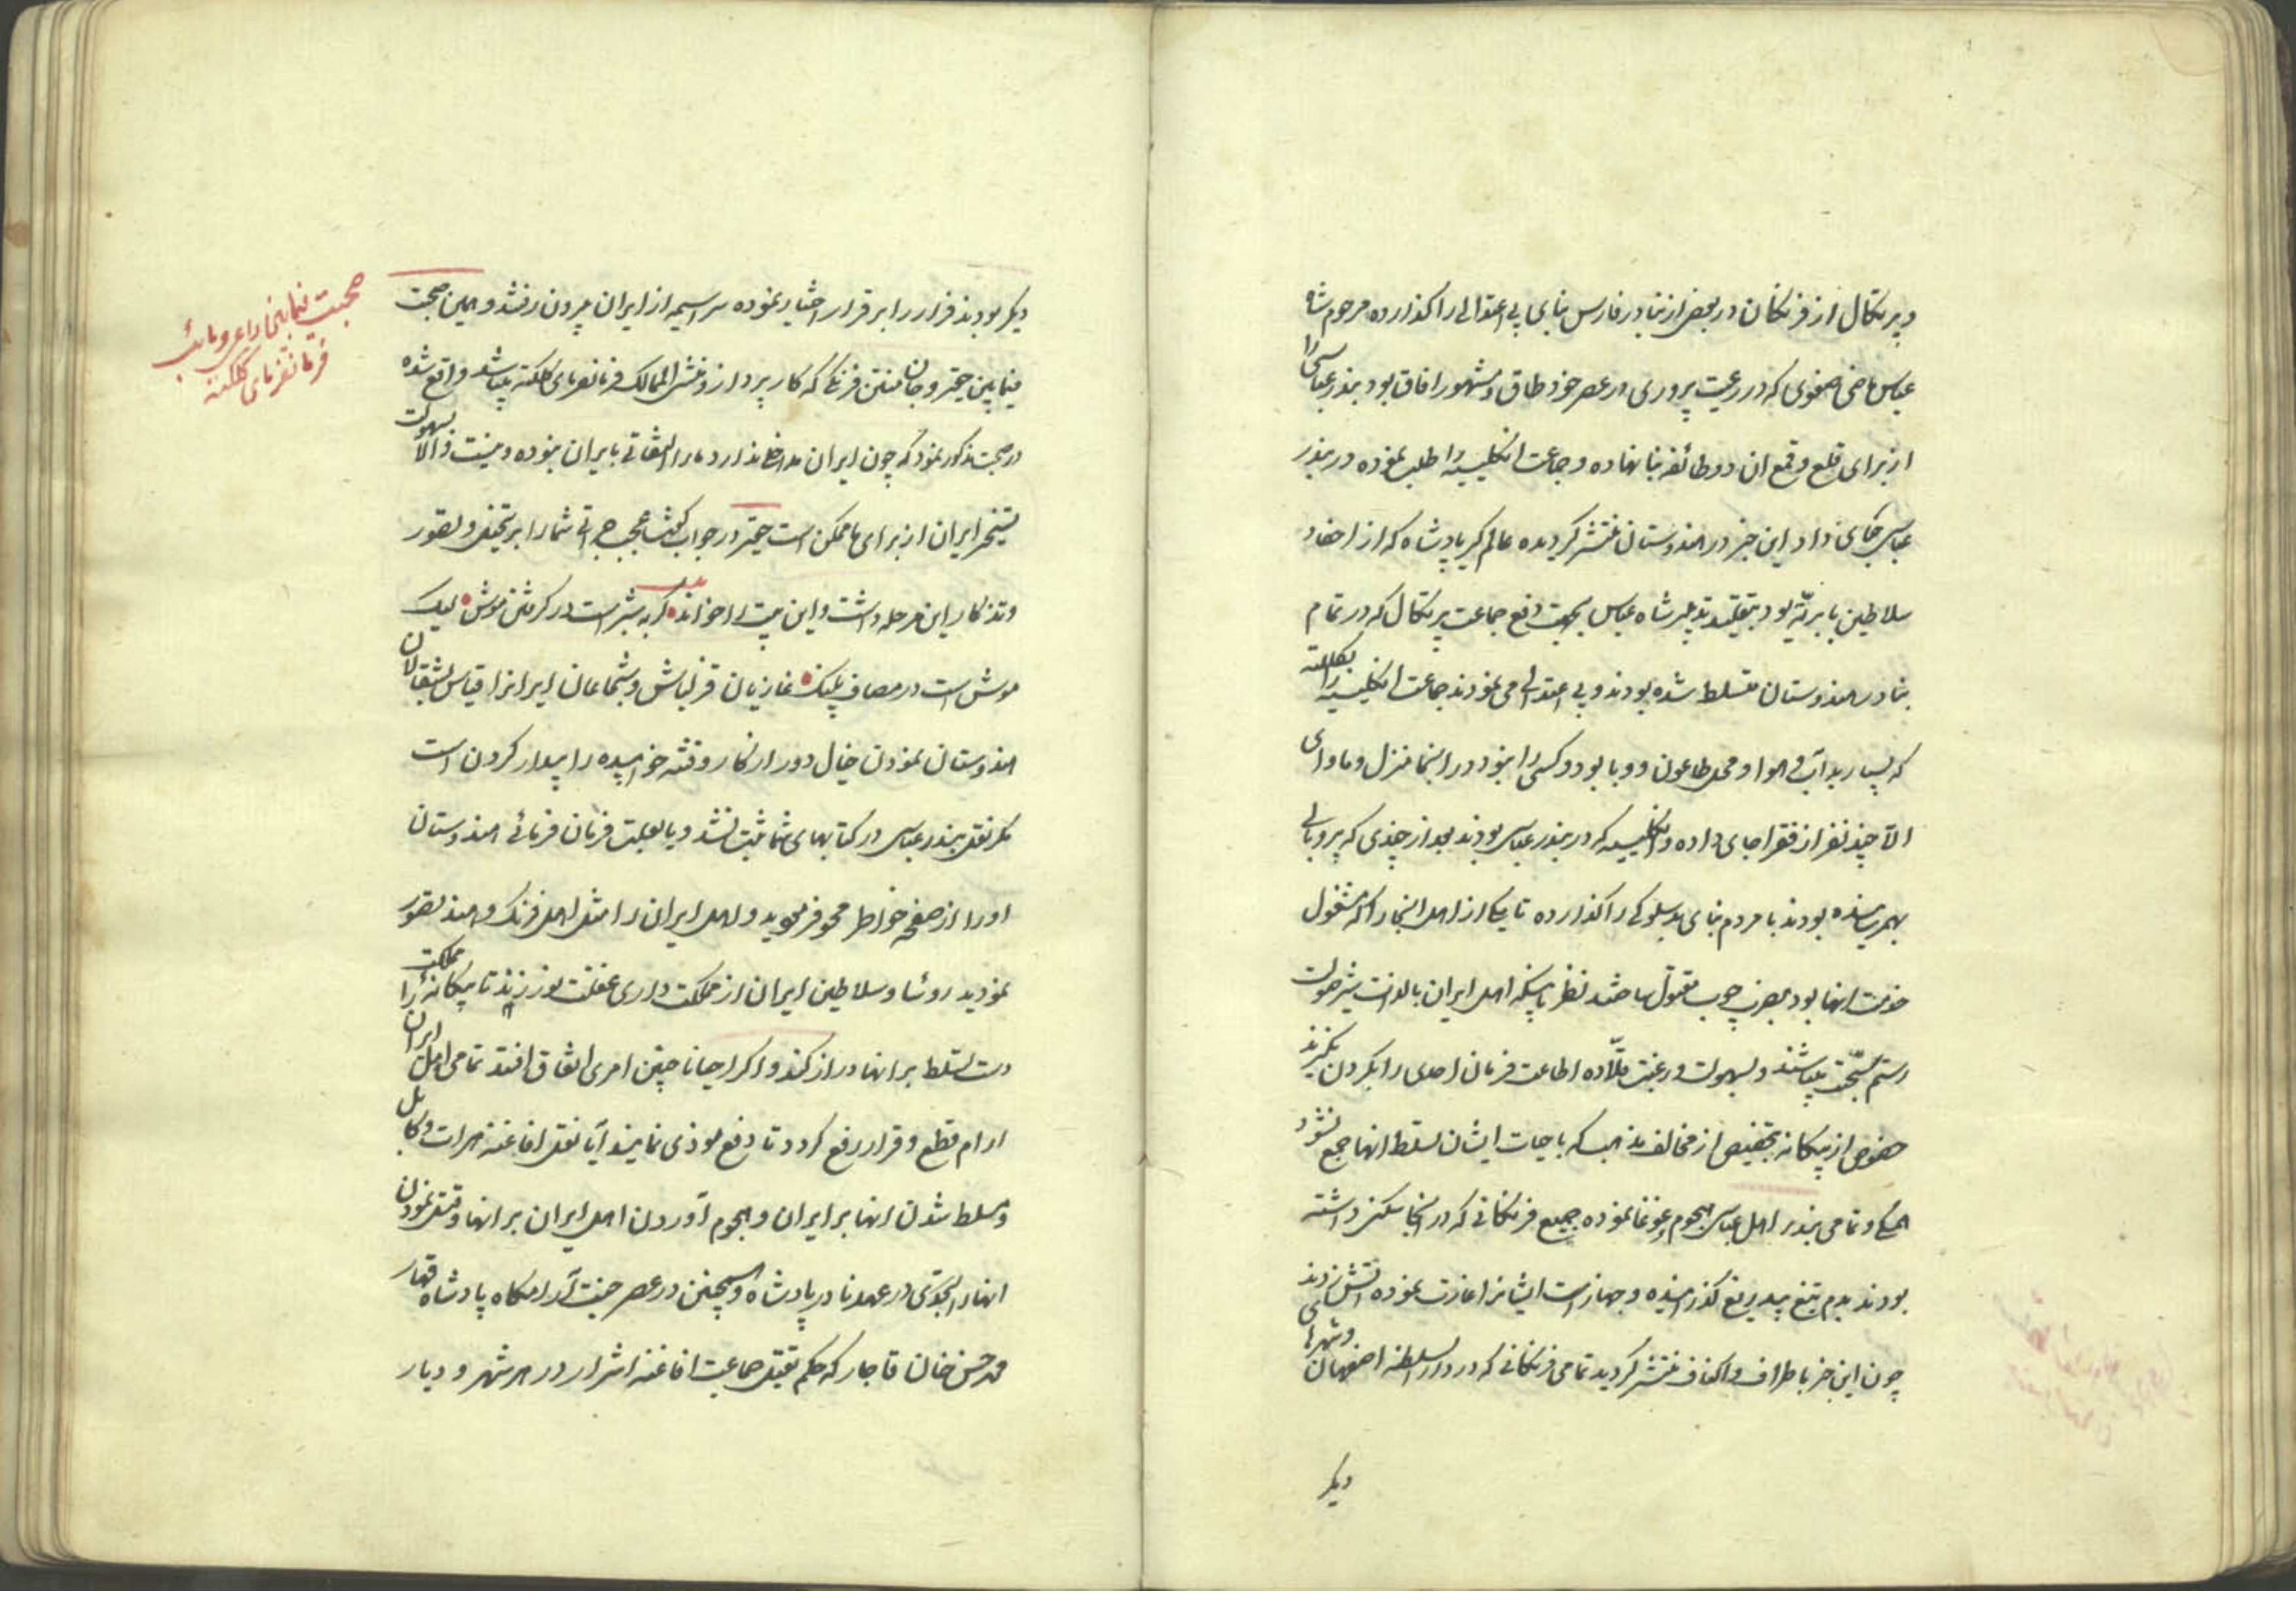 و پرتکال از فرنکان در بعض از بنادر فارس بنای بی اعتدالی را کذارده مرحوم شاه
عباس ماضی صفوی که در رعیت پروری در عصر خود طاق و مشهور افاق بود بندر عباسی را
از برای قلع و قمع ان دو طائفه بنا نهاده و جماعت انکلیسیه را طلب نموده در بندر
عباسی جای داد این خبر در هندوستان منتشر کردیده عالم کیر پادشاه که از احفاد
سلاطین بابریّه بود بتقلید تدبیر شاه عباس بجهت دفع جماعت پرتکال که در تمام
بنادر هندوستان متسلط شده بودند و بی اعتدالی می نمودند جماعت انکلیسیه را بکلکته
که بسیار بد آب و هوا و محل طاعون و وبا بود و کسی را نبود در اینجا منزل و ماوای
الّا چند نفر از فقرا جای داده و انکلیسیه که در بندر عباسی بودند بعد از چندی که پر و بالی
بهم رسانیده بودند با مردم بنای بد سلوکی را کذارده تا یکی از اهل اینجا را که مشغول
خدمت انها بود بضرب چوب مقتول ساختند نظر باینکه اهل ایران بالذات شیر صولت
رستم میباشند و بسهولت و رغبت قلّاده اطاعت فرمان احدی را بکردن نکیرند
خصوص از بیکانه بتخصیص از مخالف مذهب که با حیات ایشان تسلط انها جمع نشود
همکی و تمامی بندر اهل عباسی هجوم و غوغا نموده جمیع فرنکانی که در انجا سکنی داشته
بودند بدم تیغ بیدریغ کذرانیده و جهازات ایشانرا غارت نموده اتش زدند
چون این خبر باطراف و اکناف منتشر کردید تمامی فرنکانی که در دار السلطنه اصفهان و شهرهای
دیکر
دیکر بودند فرار را بر قرار اختیار نموده سراسیمه از ایران بیرون رفتند و همین صحبت
فیما بین حقیر و جان فرنکی که کار پرداز و منشی الممالک فرمانفرمای کلکته میباشد واقع شده
در صحبت مذکور نمود که چون ایران مداخل ندارد ما را التفاتی بایران نبوده و نیست و الّا بسهولت
تسخیر ایران از برای ما ممکن است حقیر در جواب کفت عجب جراتی شما را بر تخیل و تصور
و تذکار این مرحله داشت و این بیت را خواند کربه شیر است در کرفتن موش لیک
موش است در مصاف پلنک غازیان قزلباش و شجاعان ایرانرا قیاس بشغالان
هندوستان نمودن خیال دور از کار و فتنه خوابیده را بیدار کردن است
مکر نقل بندر عباسی در کتابهای شما ثبت نشد و یا بعلت فرمان فرمائی هندوستان
او را از صفحه خواطر محو فرموید و اهل ایران را مثل اهل فرنک و هند تصور
نمودید روسا و سلاطین ایران از مملکت داری غفلت نورزند تا بیکانه را مملکت
دست تسلط بر انها دراز کند و اکر احیانا چنین امری اتفاق افتد تمامی اهل ایران
ارام قطع و قرار رفع کردد تا دفع موذی نمایند آیا نقل افاغنه هرات و کابل
و مسلط شدن انها بر ایران و هجوم آوردن اهل ایران بر انها و قتل نمودن
انها را در عهد نادر پادشاه و همچنین در عصر جنت آرامکاه پادشاه قهار
محمد حسن خان قاجار که حکم بقتل جماعت افاغنه اشرار در هر شهر و دیار
صحبت فیما بین داعی و نایب
فرمانفرمای کلکته